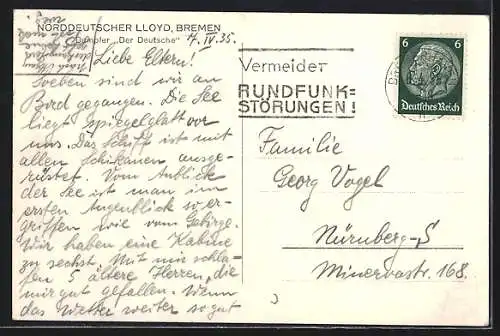 NORDDEUTSCHER LLOYD, BREMEN
Dampfer „Der Deutsche“
7. IV. 35.
Liebe Eltern!
Soeben sind wir an
Bord gegangen. Die See
liegt spiegelglatt vor
uns. Das Schiff ist mit
allen Schikanen ausge-
rüstet. Vom Anblick
der See ist man im
ersten Augenblick so er-
griffen wie vom Gebirge.
Wir haben eine Kabine
zu sechst. Mit mir schla-
fen 5 ältere Herren, die
mir gut gefallen. Wenn
das Wetter weiter so gut
Vermeidet
RUNDFUNK=
STÖRUNGEN!
6 6
Deutsches Reich
Familie
Georg Vogel
Nürnberg-S
Minervastr. 168.